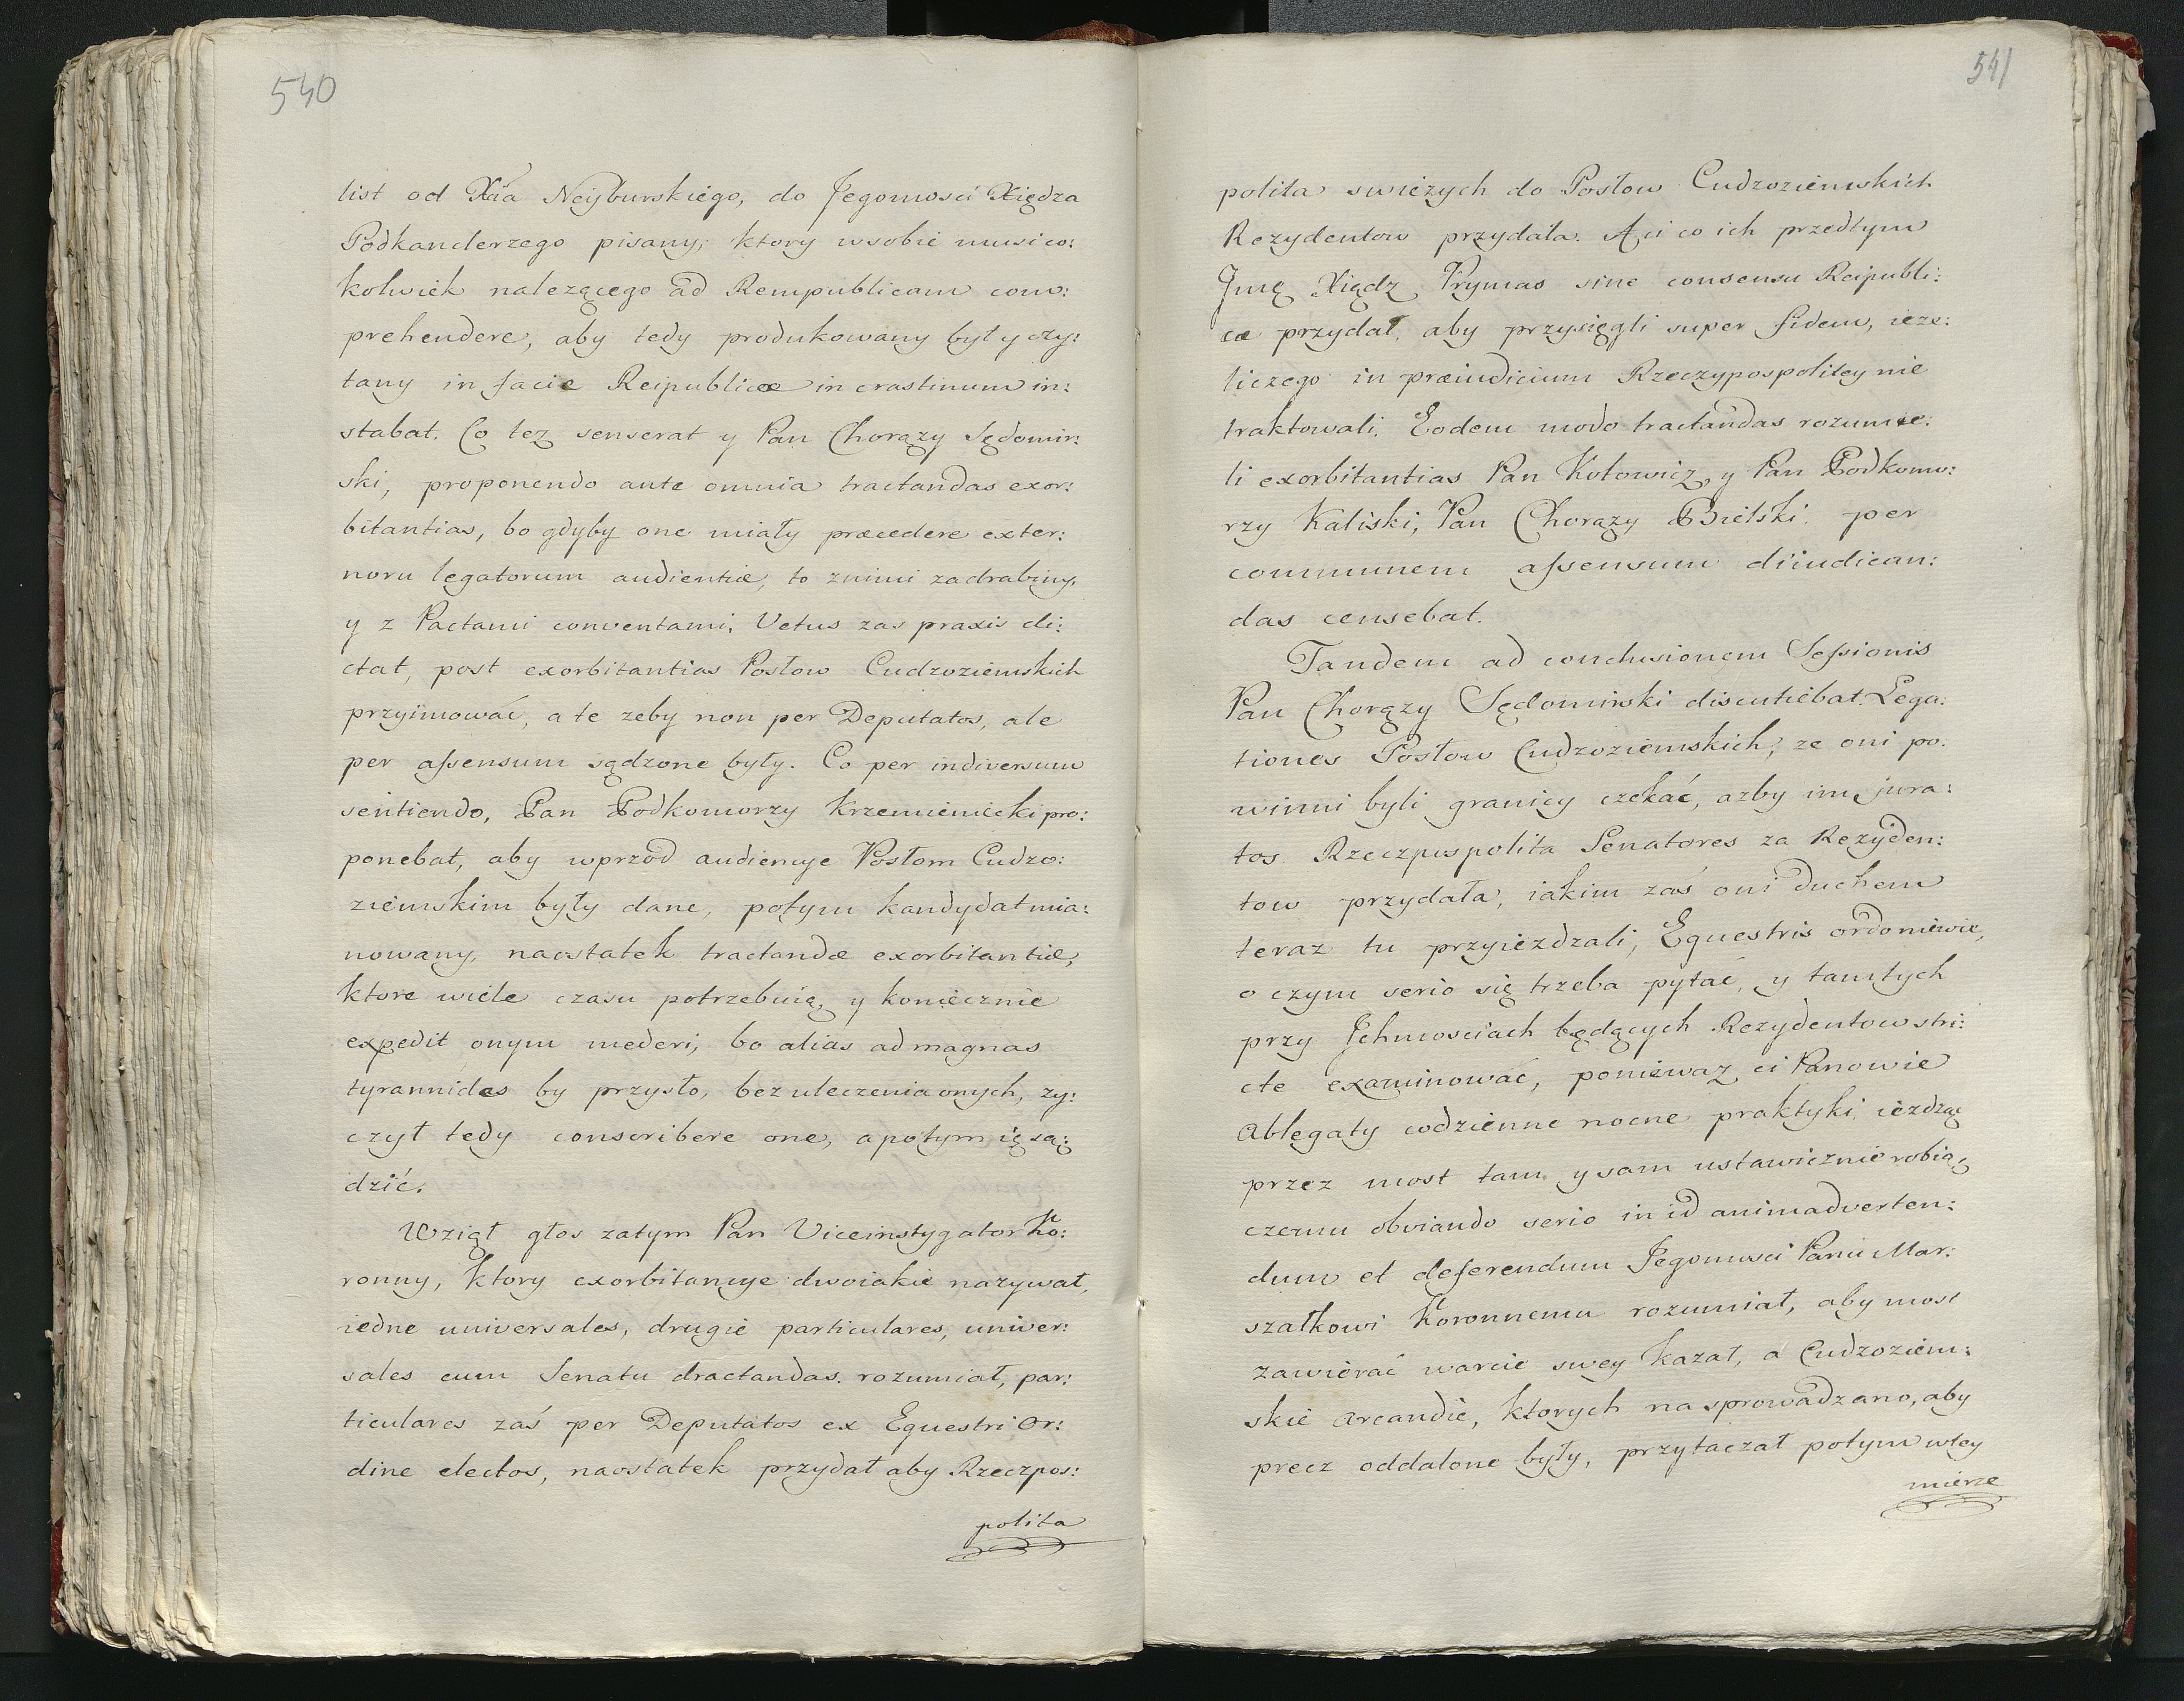 540
list od Xćia Neyburskiego, do Jegomosci Xiędza
Podkanclerzego pisany, ktory wsobie musi co:
kolwiek nalezącego ad Rempublicam com:
prehendere, aby tedy produkowany był y czy:
tany in facie Reipublicæ in crastinum in:
stabat. Co tez senserat y Pan Chorązy Sędomir:
ski, proponendo ante omnia tractandas exor:
bitantias, bo gdyby one miały præcedere exter:
noru legatorum audientiæ, to znimi zadrabiny,
y z Pactami conventami, Vetus zas praxis di:
ctat, post exorbitantias Posłow Cudzoziemskich
przyimować, a te zeby non per Deputatos, ale
per assensum sądzone były. Co per indiversum
sentiendo, Pan Podkomorzy Krzemieniecki pro:
ponebat, aby wprzod audiencye Posłom Cudzo:
ziemskim były dane, potym kandydat mia:
nowany, naostatek tractandæ exorbitantiæ,
ktore wiele czasu potrzebuią, y koniecznie
expedit onym mederi, bo alias ad magnas
tyrannides by przyszło, bez uleczenia onych, zy:
czył tedy conscribere one, a potym ię są:
dzić.
Wziął głos zatym Pan Viceinstygator Ko:
ronny, ktory exorbitancye dwoiakie nazywał,
iedne universales, drugie particulares, univer:
sales cum Senatu dractandas. rozumiał, par:
ticulares zaś per Deputatos ex Equestri Or:
dine electos, naostatek przydał aby Rzeczpos:
polita
541
polita swieżych do Posłow Cudzoziemskich
Rezydentow przydała. A ci co ich przedtym
Jmę Xiądz Prymas sine consensu Reipubli:
cæ przydał, aby przysięgli super fidem, ieze:
li czego in præiudicium Rzeczypospolitey nie
traktowali. Eodem modo tractandas rozumie:
li exorbitantias Pan Kotowicz, y Pan Podkomo:
rzy Kaliski, Pan Chorązy Bielski per
communem assensum diiudican:
das censebat.
Tandem ad conclusionem Sessionis
Pan Chorązy Sędomirski discutiebat Lega:
tiones Posłow Cudzoziemskich, ze oni po:
winni byli granicy czekać, azby im jura:
tos Rzeczpospolita Senatores za Rezyden:
tow przydała, iakim zaś oni duchem
teraz tu przyiezdzali, Equestris ordo niewie,
o czym serio się trzeba pytać, y tamtych
przy Jchmosciach będących Rezydentow stri:
cte examinować, poniewaz ci Panowie
Ablegaty codzienne nocne praktyki, iezdząc
przez most tam y sam ustawicznie robią,
czemu obviando serio in id animadverten:
dum et deferendum Jegomosci Panu Mar:
szałkowi Koronnemu rozumiał, aby most
zawierać warcie swey kazał, a Cudzoziem:
skie arcandie, ktorych nasprowadzano, aby
precz oddalone były, przytaczał potym wtey
mierze